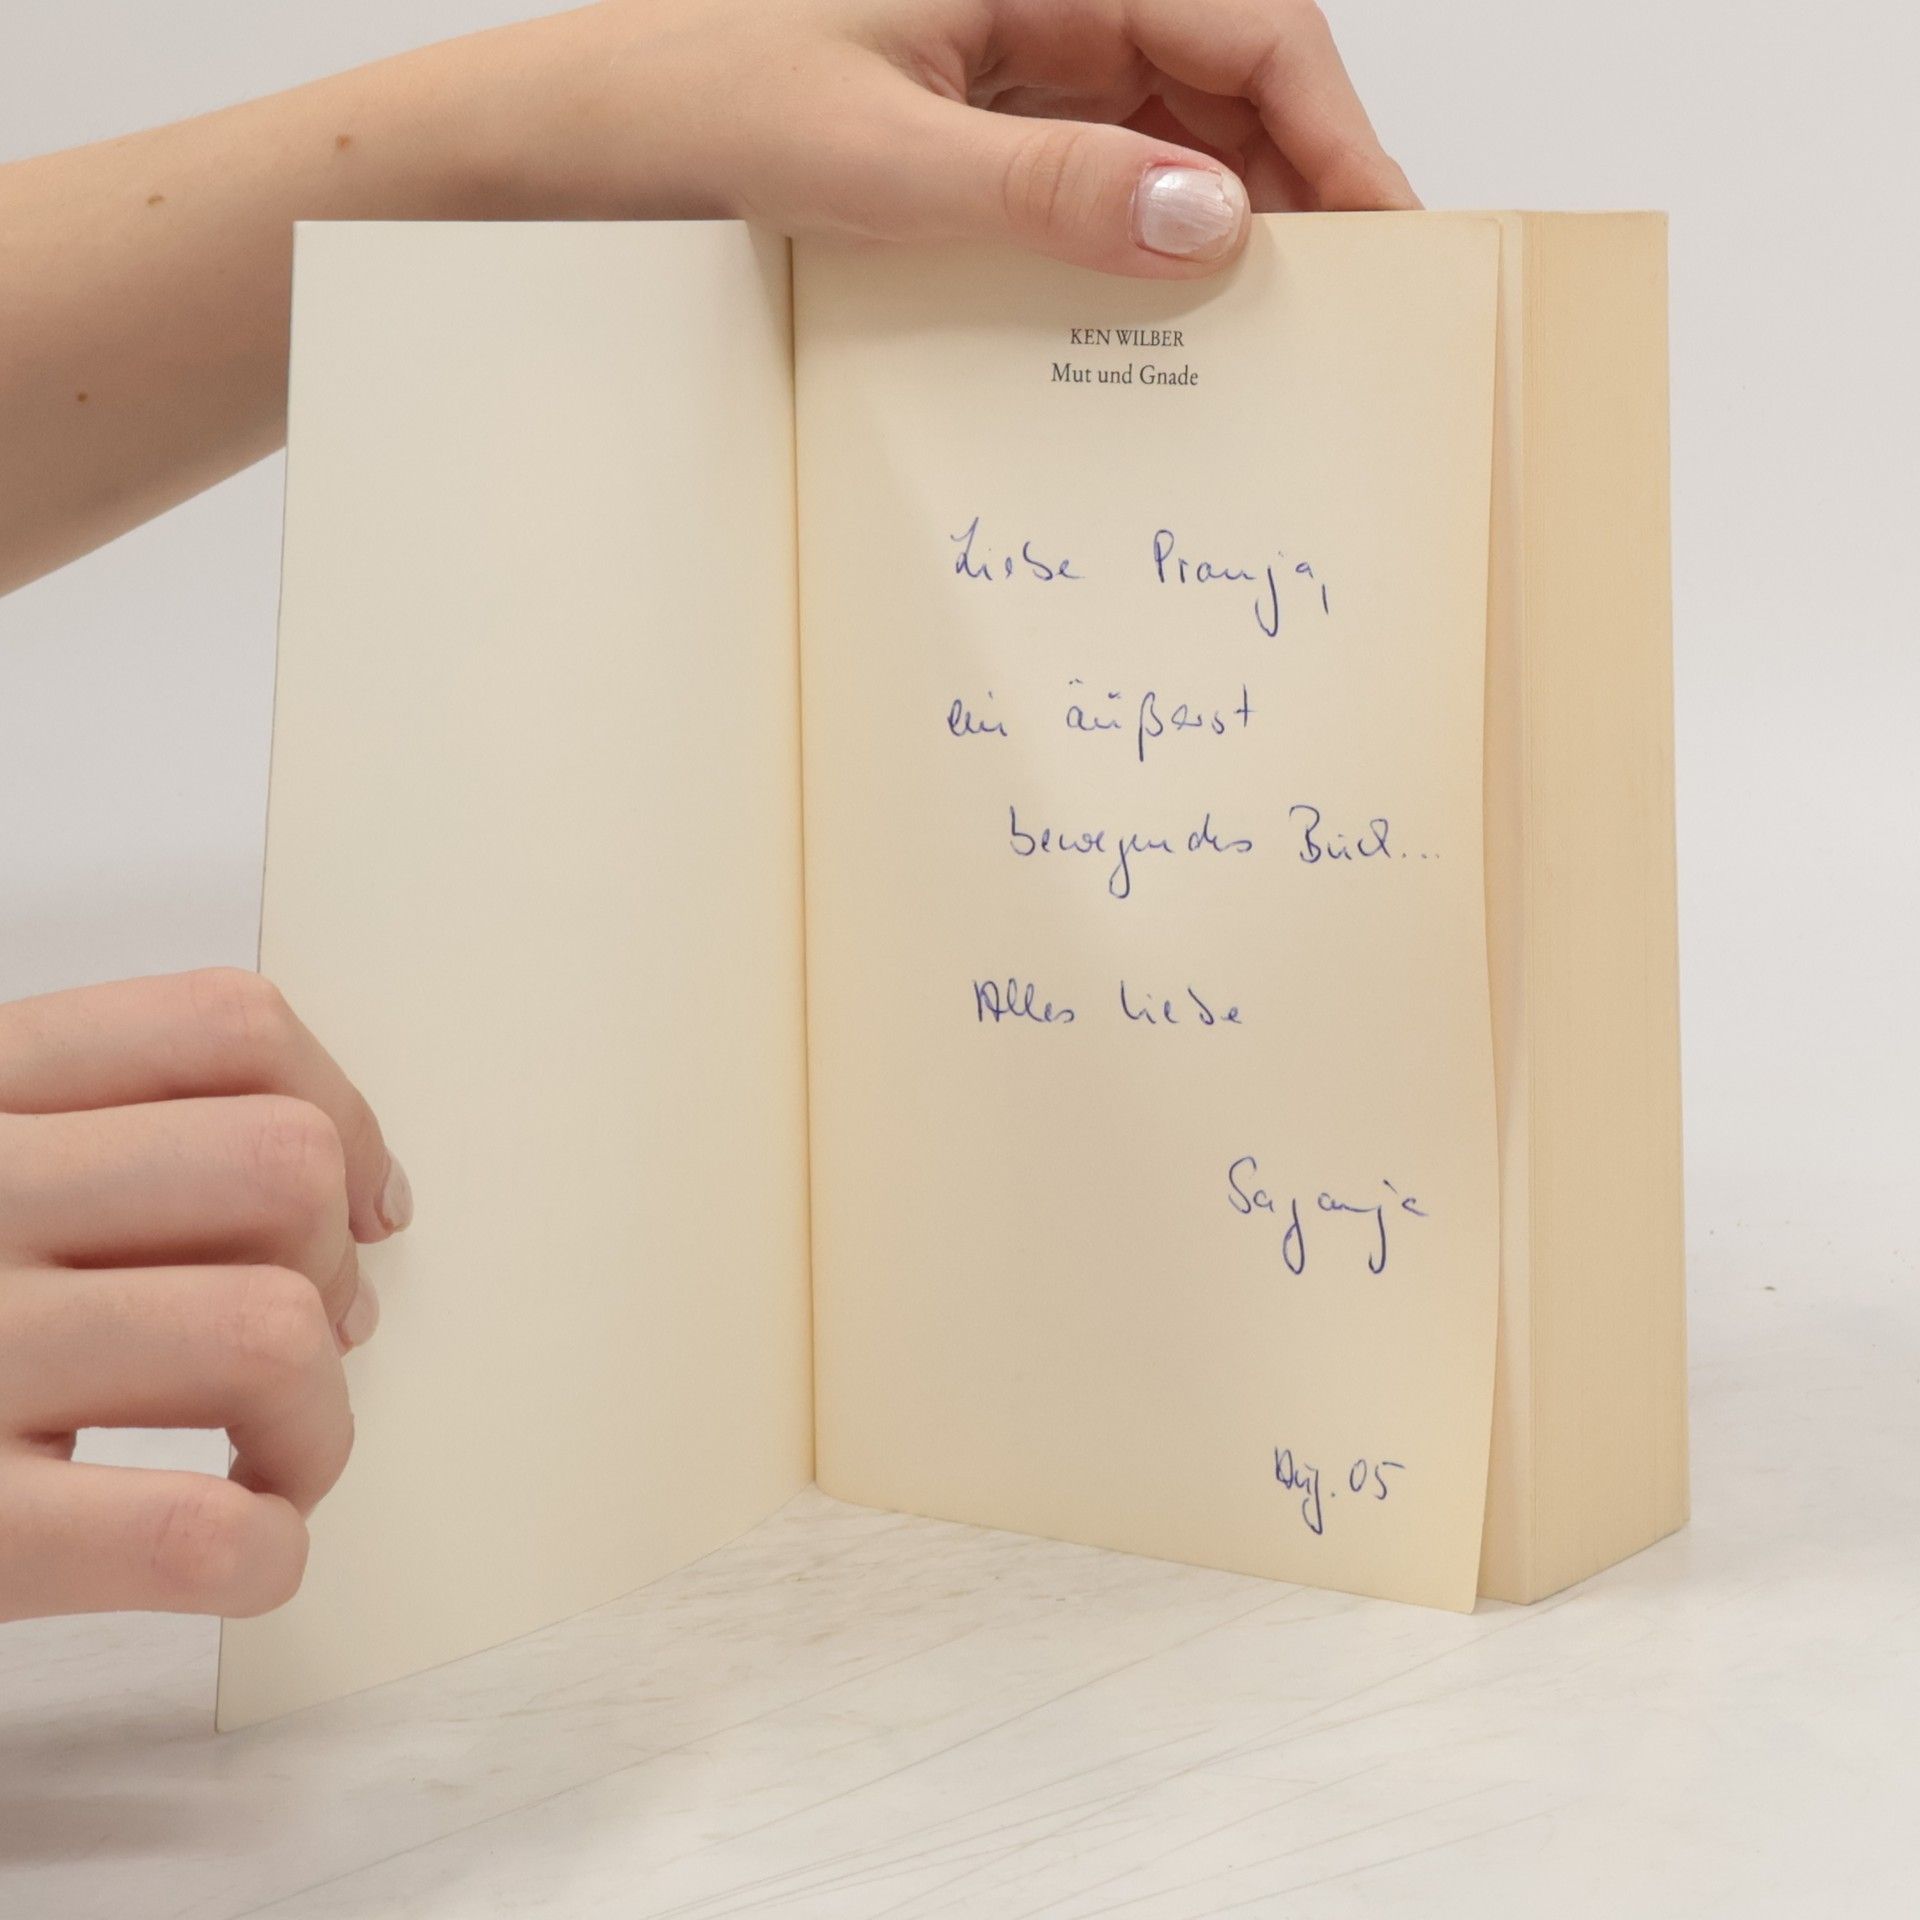 KEN WILBER
Mut und Gnade
Liebe
ein äußerst
bewegendes Buch...
Alles Liebe
Aug. 05